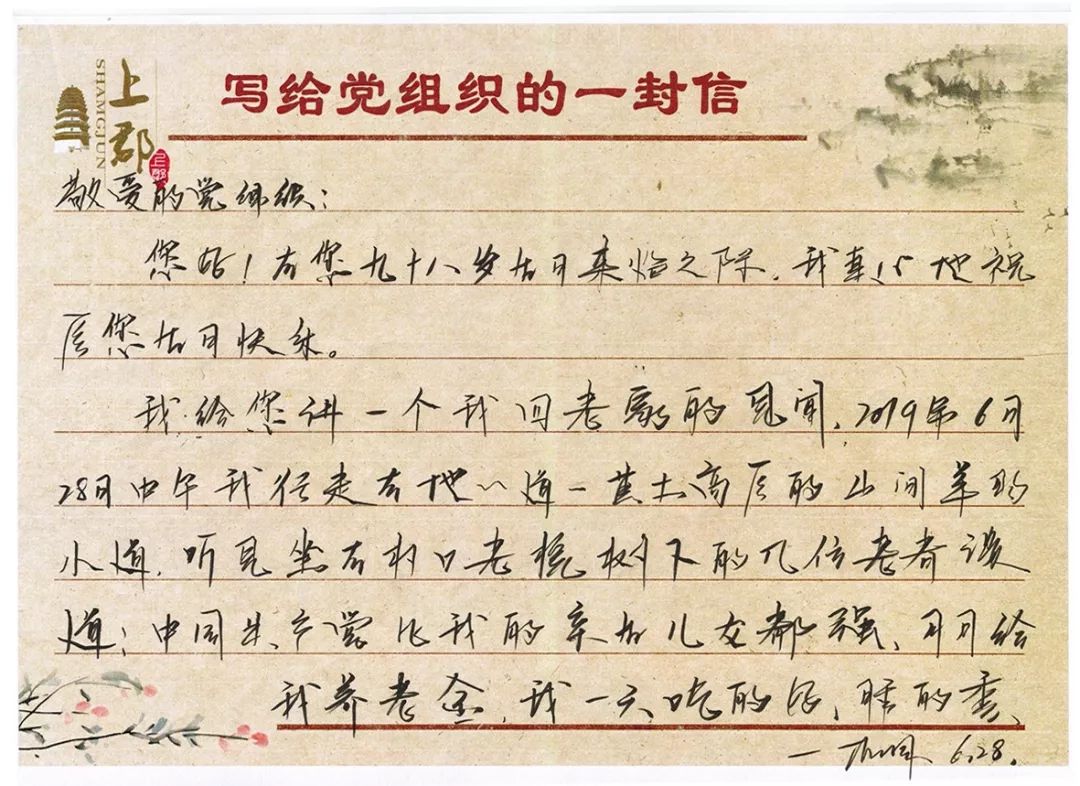 上郡
SHANGJUN
写给党组织的一封信
敬爱的党组织：
您好！在您九十八岁生日来临之际，我真心地祝
愿您生日快乐。
我给您讲一个我回老家的见闻，2019年6月
28日中午我行走在地道一黄土高原的山间羊肠
小道，听见坐在村口老槐树下的几位老者谈
道：中国共产党比我的亲生儿女都强，月月给
我养老金，我一天吃的好，睡的香、
6.28.